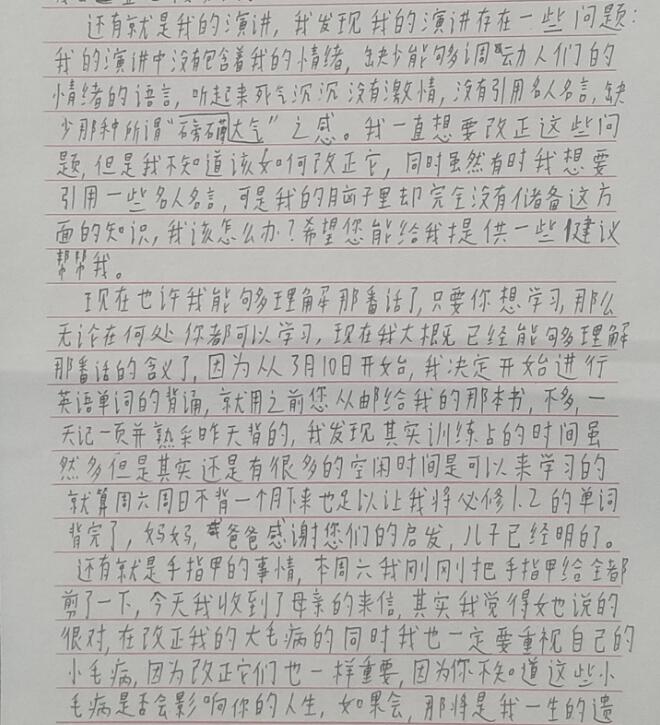 还有就是我的演讲，我发现我的演讲存在一些问题：
我的演讲中没有包含着我的情绪，缺少能够多调动人们的
情绪的语言，听起来死气沉沉没有激情，没有引用名人名言，缺
少那种所谓“磅礴大气”之感。我一直想要改正这些问
题，但是我不知道该如何改正它，同时虽然有时我想要
引用一些名人名言，可是我的脑子里却完全没有储备这方
面的知识，我该怎么办？希望您能给我提供一些建议
帮帮我。
现在也许我能够多理解那番话了，只要你想学习，那么
无论在何处你都可以学习，现在我大概已经能够多理解
那番话的含义了，因为从3月10日开始，我决定开始进行
英语单词的背诵，就用之前您从邮给我的那本书，不多，一
天记一页并熟悉昨天背的，我发现其实训练占的时间虽
然多但是其实还是有很多的空闲时间是可以来学习的
就算周六周日不背一个月下来也足以让我将必修1.2的单词
背完了，妈妈，爸爸感谢您们的启发，儿子已经明白了。
还有就是手指甲的事情，本周六我刚刚把手指甲给全都
剪了一下，今天我收到了母亲的来信，其实我觉得她说的
很对，在改正我的大毛病的同时我也一定要重视自己的
小毛病，因为改正它们也一样重要，因为你不知道这些小
毛病是否会影响你的人生，如果会，那将是我一生的遗